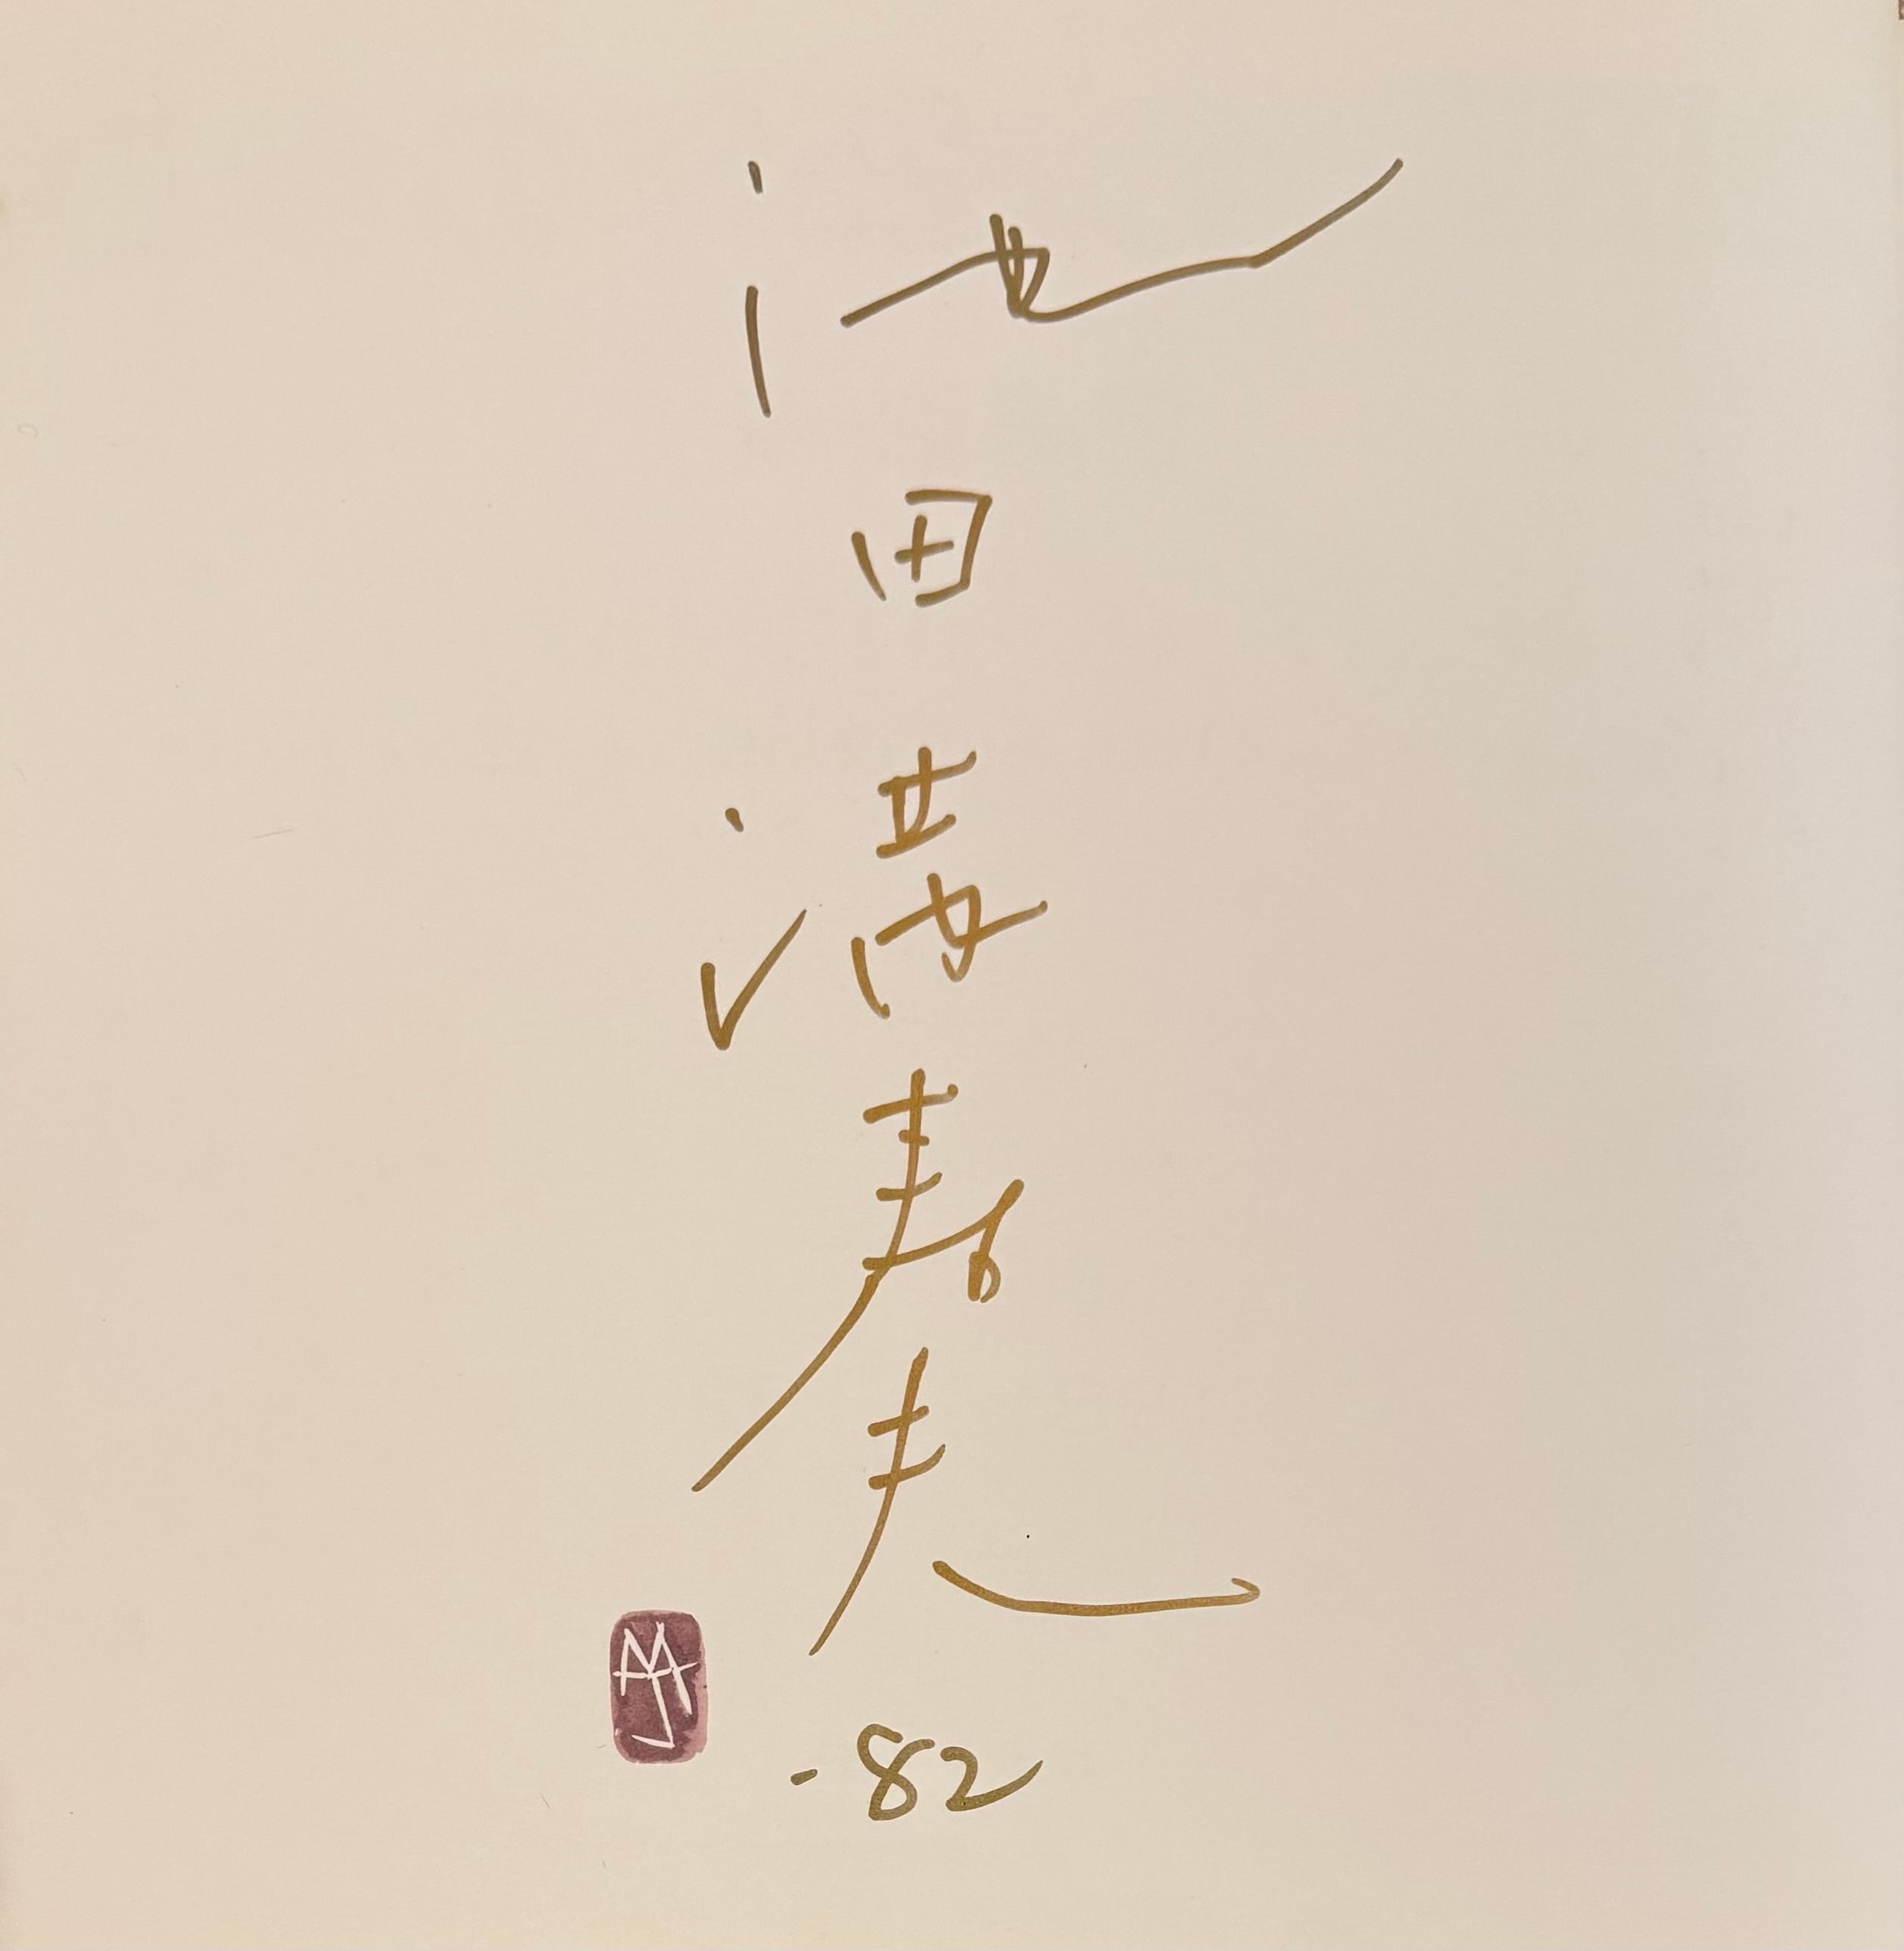 池田満寿夫
-82